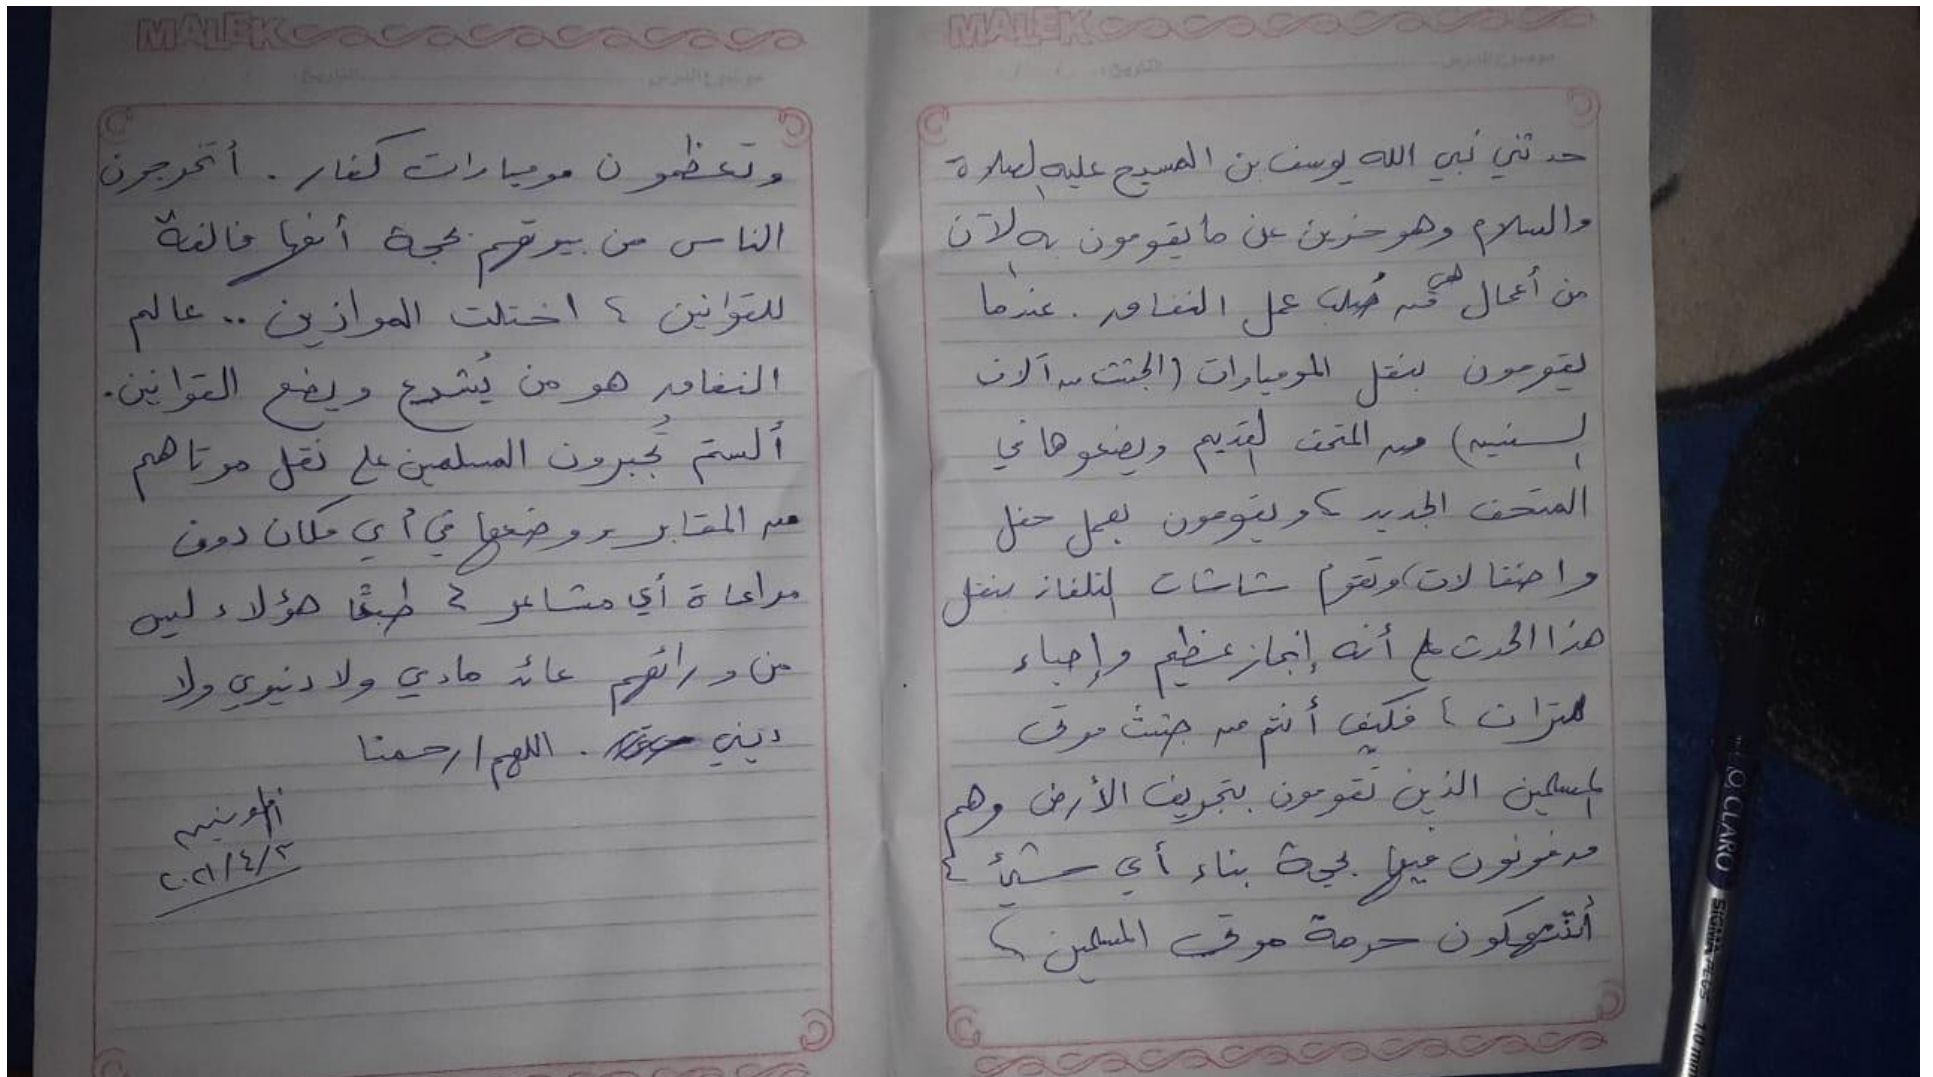 MALEK
موضوع الدرس التاريخ: / /
حدثني نبي الله يوسف بن المسيح عليه الصلاة
والسلام وهو حزين عن ما يقومون به الآن
من أعمال هي من صُلب عمل النفاق. عندما
يقومون بنقل المومياوات (الجثث من آلاف
السنين) من المتحف القديم ويضعوها في
المتحف الجديد، ويقومون بعمل حفل
واحتفالات، وتقوم شاشات التلفاز بنقل
هذا الحدث على أنه إنجاز عظيم وإحياء
للتراث، فكيف أنتم من جثث موتى
المسلمين الذين تقومون بتجريف الأرض وهم
مدفونون فيها بحجة بناء أي شيئ؟
أتنتهكون حرمة موتى المسلمين،
MALEK
موضوع الدرس التاريخ: / /
وتعظمون مومياوات كفار. أتخرجون
الناس من بيوتهم بحجة أنها مخالفة
للقوانين؟ اختلت الموازين.. عالم
النفاق هو من يُشرع ويضع القوانين.
ألستم تُجبرون المسلمين على نقل موتاهم
من المقابر ووضعها في أي مكان دون
مراعاة أي مشاعر؟ طبعًا هؤلاء ليس
من ورائهم عائد مادي ولا دنيوي ولا
ديني. اللهم ارحمنا
٢٠٢١/٤/٣
O CLARO
SIGMA PLUS 1.0 mm